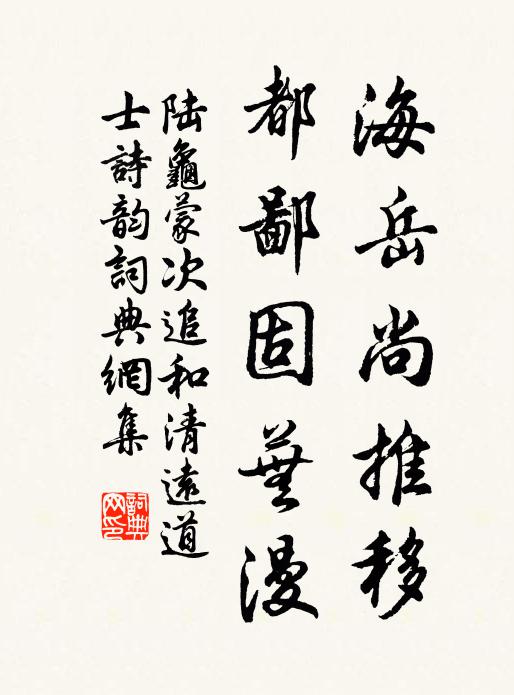 海岳尚推移
都鄙固蕪漫
陆龜蒙次追和清遠道
士詩韵詞典網集
詞典網印